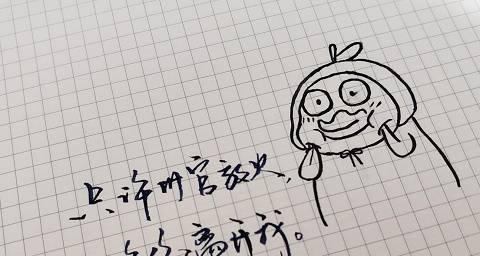 只许州官放火,
离开我。